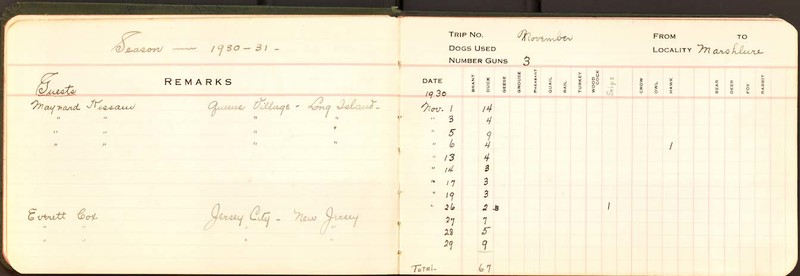 Season — 1930-31-
Guests
REMARKS
Maynard Nissam Queens Village - Long Island-
" " " "
" " " "
" " " "
Everett Cox Jersey City - New Jersey
" " " "
" " " "
TRIP NO. November FROM TO
DOGS USED LOCALITY Marshlure
NUMBER GUNS 3
DATE BRANT DUCK GEESE GROUSE PHEASANT QUAIL RAIL TURKEY WOOD COCK Snipe CROW OWL HAWK BEAR DEER FOX RABBIT
1930
Nov. 1 14
" 3 4
" 5 9
" 6 4 1
" 13 4
" 14 3
" 17 3
" 19 3
" 26 2 1
27 7
28 5
29 9
TOTAL- 67